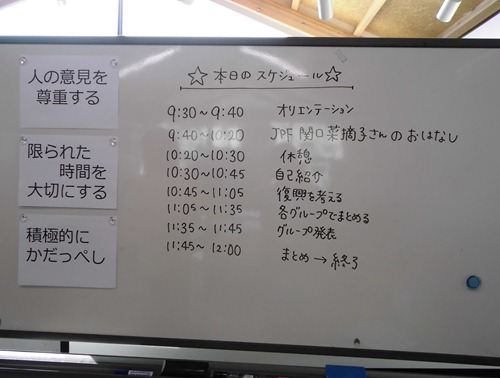 人の意見を
尊重する
限られた
時間を
大切にする
積極的に
かだっぺし
☆本日のスケジュール☆
9:30～9:40 オリエンテーション
9:40～10:20 JPF 関口菜摘子さんのおはなし
10:20～10:30 休憩
10:30～10:45 自己紹介
10:45～11:05 復興を考える
11:05～11:35 各グループでまとめる
11:35～11:45 グループ発表
11:45～12:00 まとめ→終了